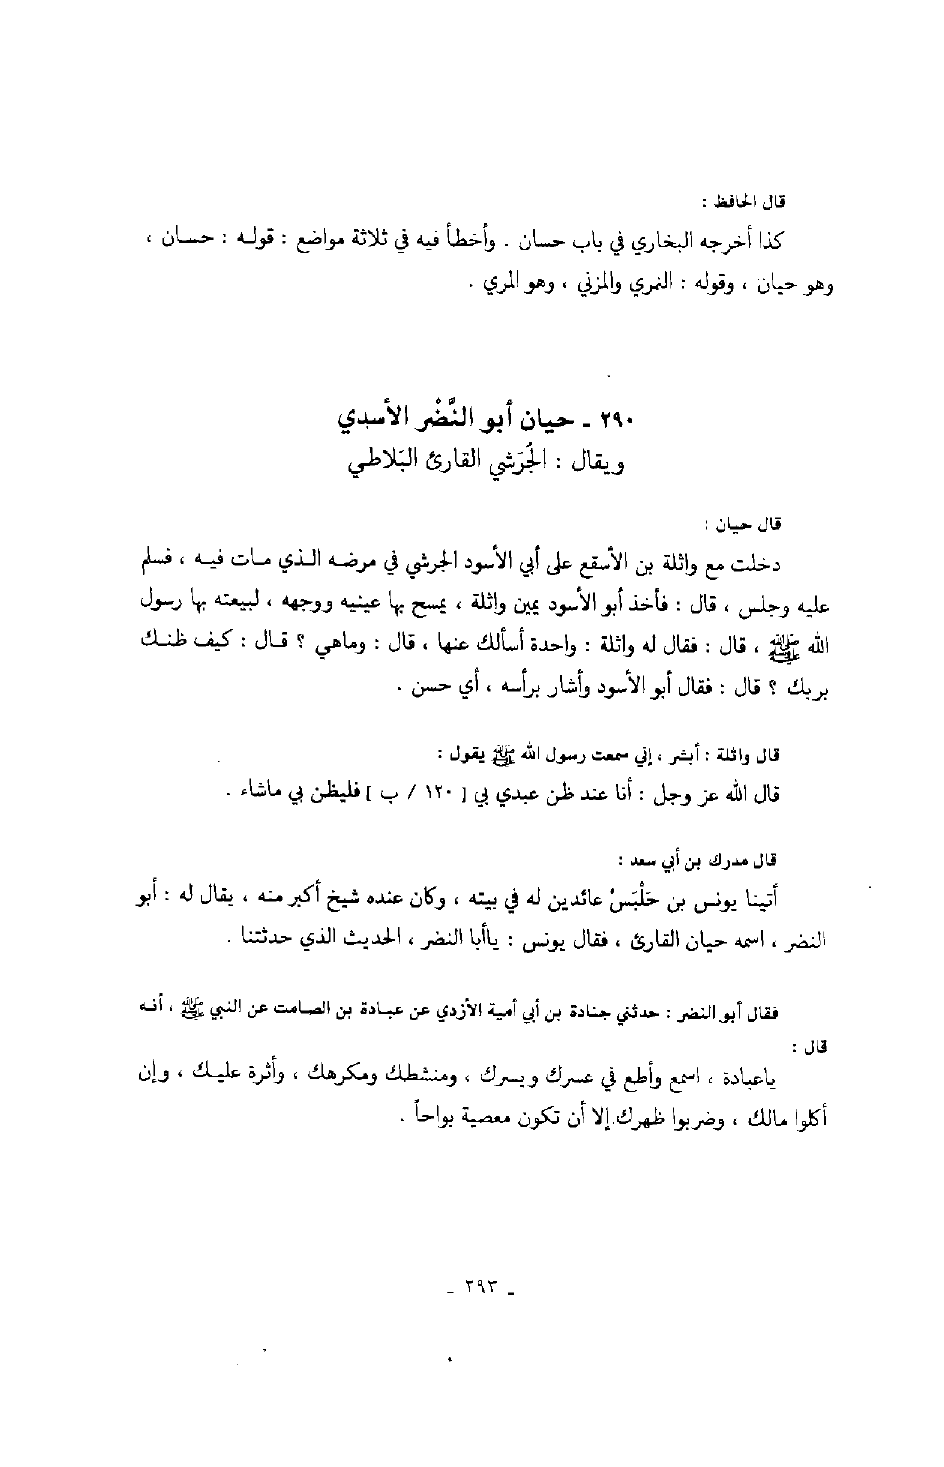 قال الحافظ :
كذا أخرجه البخاري في باب حسان . وأخطأ فيه في ثلاثة مواضع : قوله : حسان ،
وهو حيان ، وقوله : النمري والمزني ، وهو المري .
٢٩٠ ـ حيان أبو النَّضْر الأسدي
ويقال : الجُرَشي القارئ البَلاطي
قال حيان :
دخلت مع واثلة بن الأسقع على أبي الأسود الجرشي في مرضه الذي مات فيه ، فسلم
عليه وجلس ، قال : فأخذ أبو الأسود يمين واثلة ، يمسح بها عينيه ووجهه ، لبيعته بها رسول
الله ﷺ ، قال : فقال له واثلة : واحدة أسألك عنها ، قال : وماهي ؟ قال : كيف ظنك
بربك ؟ قال : فقال أبو الأسود وأشار برأسه ، أي حسن .
قال واثلة : أبشر ، إني سمعت رسول الله ﷺ يقول :
قال الله عز وجل : أنا عند ظن عبدي بي [ ١٢٠ / ب ] فليظن بي ماشاء .
قال مدرك بن أبي سعد :
أتينا يونس بن حَلْبَسْ عائدين له في بيته ، وكان عنده شيخ أكبر منه ، يقال له : أبو
النضر ، اسمه حيان القارئ ، فقال يونس : ياأبا النضر ، الحديث الذي حدثتنا .
فقال أبو النضر : حدثني جنادة بن أبي أمية الأزدي عن عبادة بن الصامت عن النبي ﷺ ، أنه
قال :
ياعبادة ، اسمع وأطع في عسرك ويسرك ، ومنشطك ومكرهك ، وأثرة عليك ، وإن
أكلوا مالك ، وضربوا ظهرك إلا أن تكون معصية بواحاً .
ـ ٢٩٣ ـ